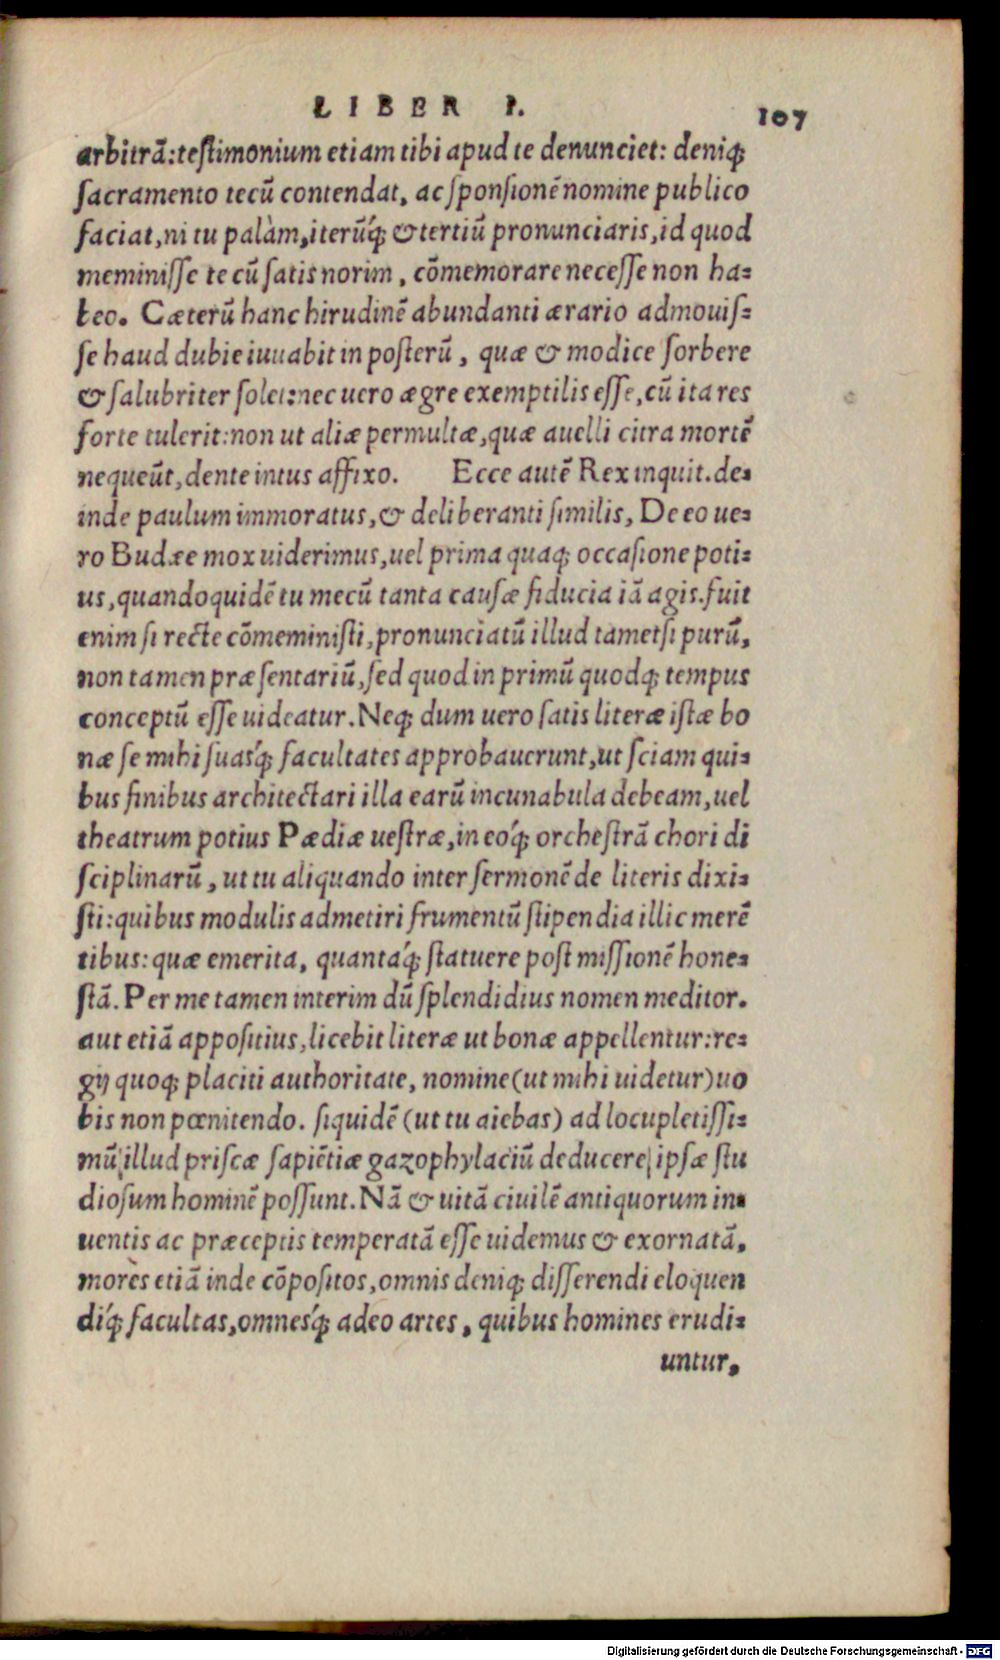 LIBER I. 107
arbitrā: testimonium etiam tibi apud te denunciet: deniqꝫ
sacramento tecū contendat, ac sponsionē nomine publico
faciat, ni tu palàm, iterū́qꝫ & tertiū pronunciaris, id quod
meminisse te cū satis norim, cōmemorare necesse non ha-
beo. Cæterū hanc hirudinē abundanti ærario admouis-
se haud dubie iuuabit in posterū, quæ & modice sorbere
& salubriter solet: nec uero ægre exemptilis esse, cū ita res
forte tulerit: non ut aliæ permultæ, quæ auelli citra mortē
nequeūt, dente intus affixo. Ecce autē Rex inquit. de-
inde paulum immoratus, & deliberanti similis, De eo ue-
ro Budæe mox uiderimus, uel prima quaqꝫ occasione poti-
us, quandoquidē tu mecū tanta causæ fiducia iā agis. fuit
enim si recte cōmeministi, pronunciatū illud tametsi purū,
non tamen præsentariū, sed quod in primū quodqꝫ tempus
conceptū esse uideatur. Neqꝫ dum uero satis literæ istæ bo
næ se mihi suasq́ꝫ facultates approbauerunt, ut sciam qui-
bus finibus architectari illa earū incunabula debeam, uel
theatrum potius Pædiæ uestræ, in eoq́ꝫ orchestrā chori di
sciplinarū, ut tu aliquando inter sermonē de literis dixi-
sti: quibus modulis admetiri frumentū stipendia illic merē
tibus: quæ emerita, quantaq́ꝫ statuere post missionē hone-
stā. Per me tamen interim dū splendidius nomen meditor.
aut etiā appositius, licebit literæ ut bonæ appellentur: re-
gij quoqꝫ placiti authoritate, nomine (ut mihi uidetur) uo
bis non pœnitendo. siquidē (ut tu aiebas) ad locupletissi-
mū illud priscæ sapiētiæ gazophylaciū deducere ipsæ stu
diosum hominē possunt. Nā & uitā ciuilē antiquorum in-
uentis ac præceptis temperatā esse uidemus & exornatā,
mores etiā inde cōpositos, omnis deniqꝫ disserendi eloquen
diq́ꝫ facultas, omnesq́ꝫ adeo artes, quibus homines erudi-
untur,
Digitalisierung gefördert durch die Deutsche Forschungsgemeinschaft - DFG